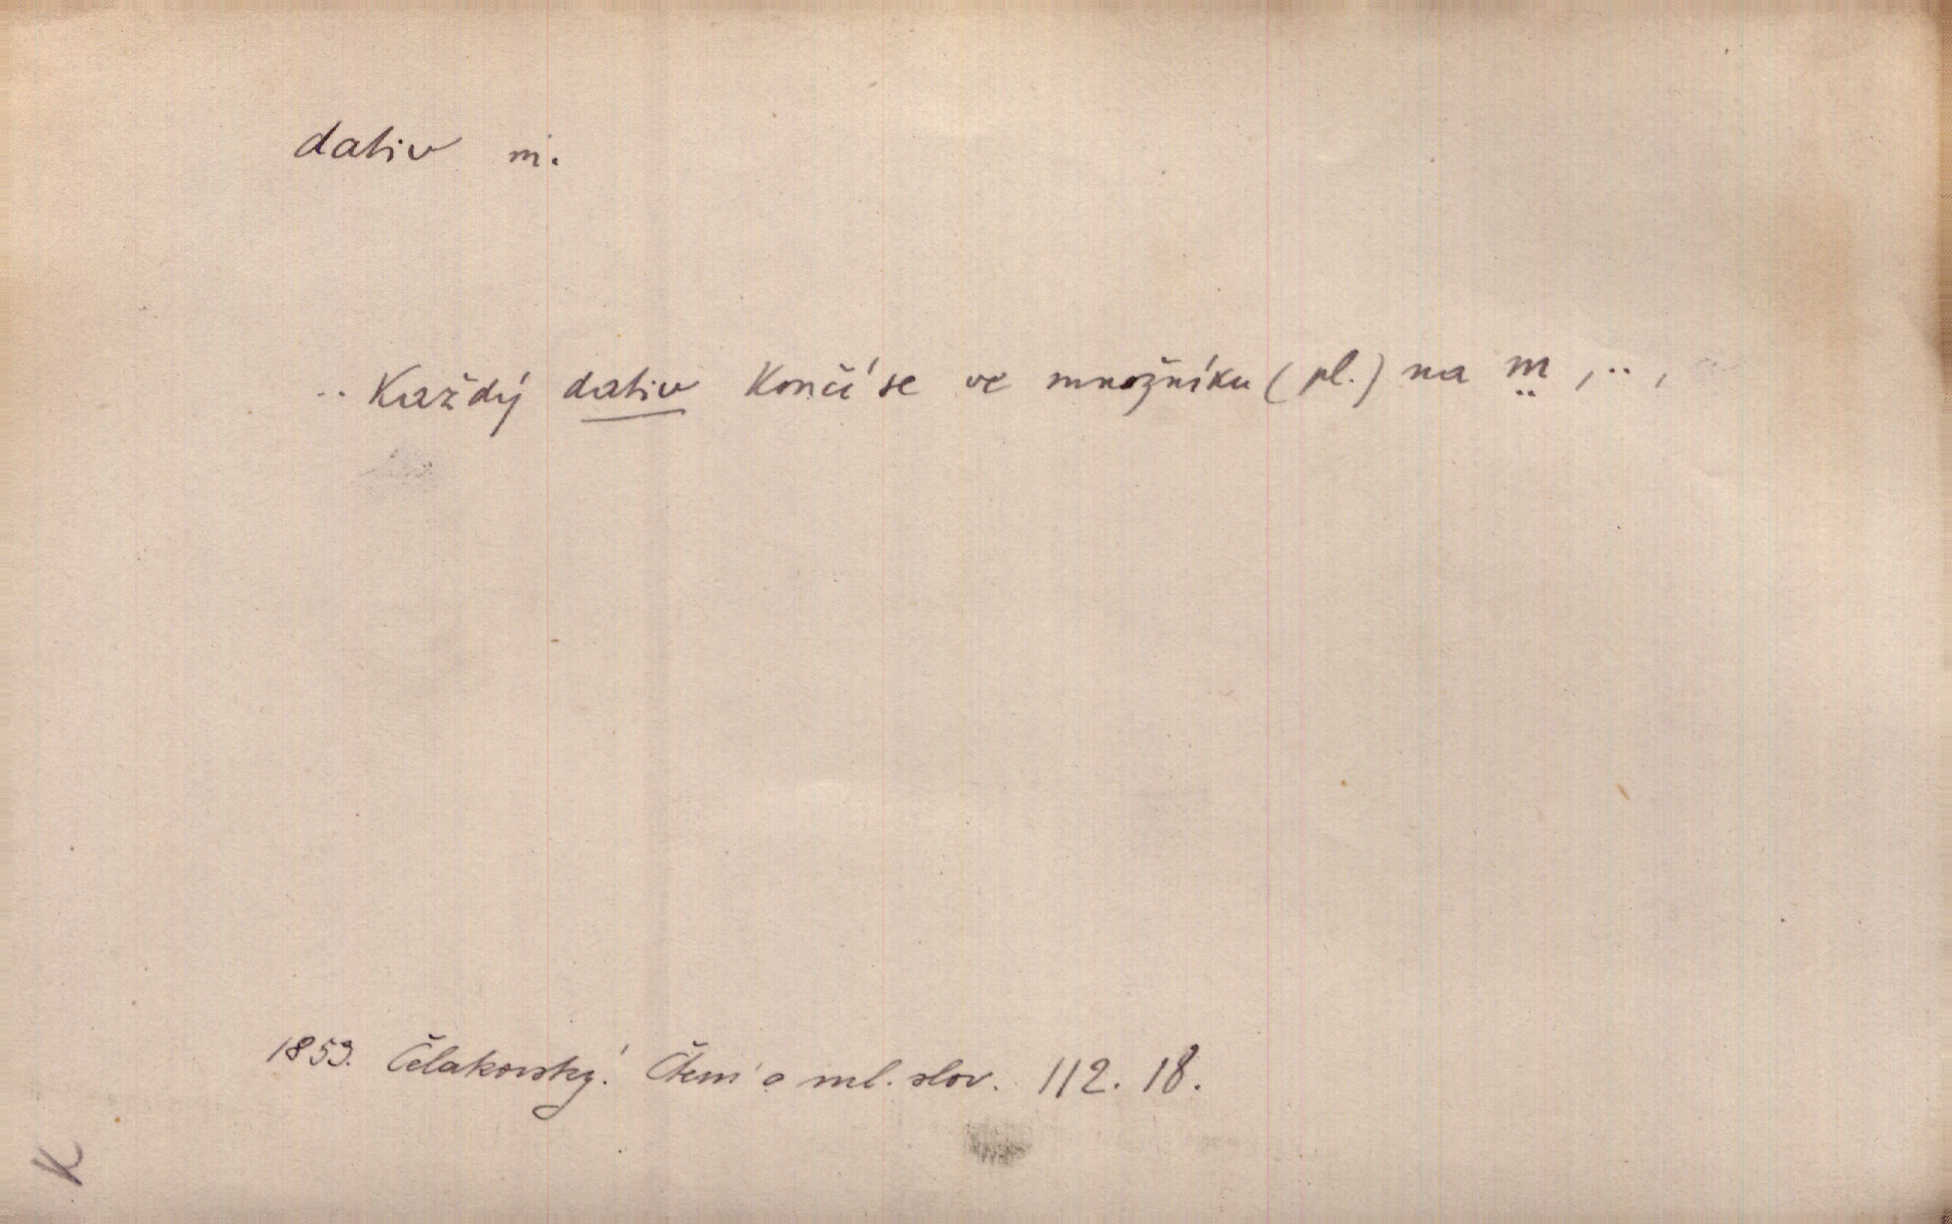 dativ m.
.. Každý dativ končí se ve množníku (pl.) na m , .. ,
1853. Čelakovský. Čtení o ml. slov. 112. 18.
K